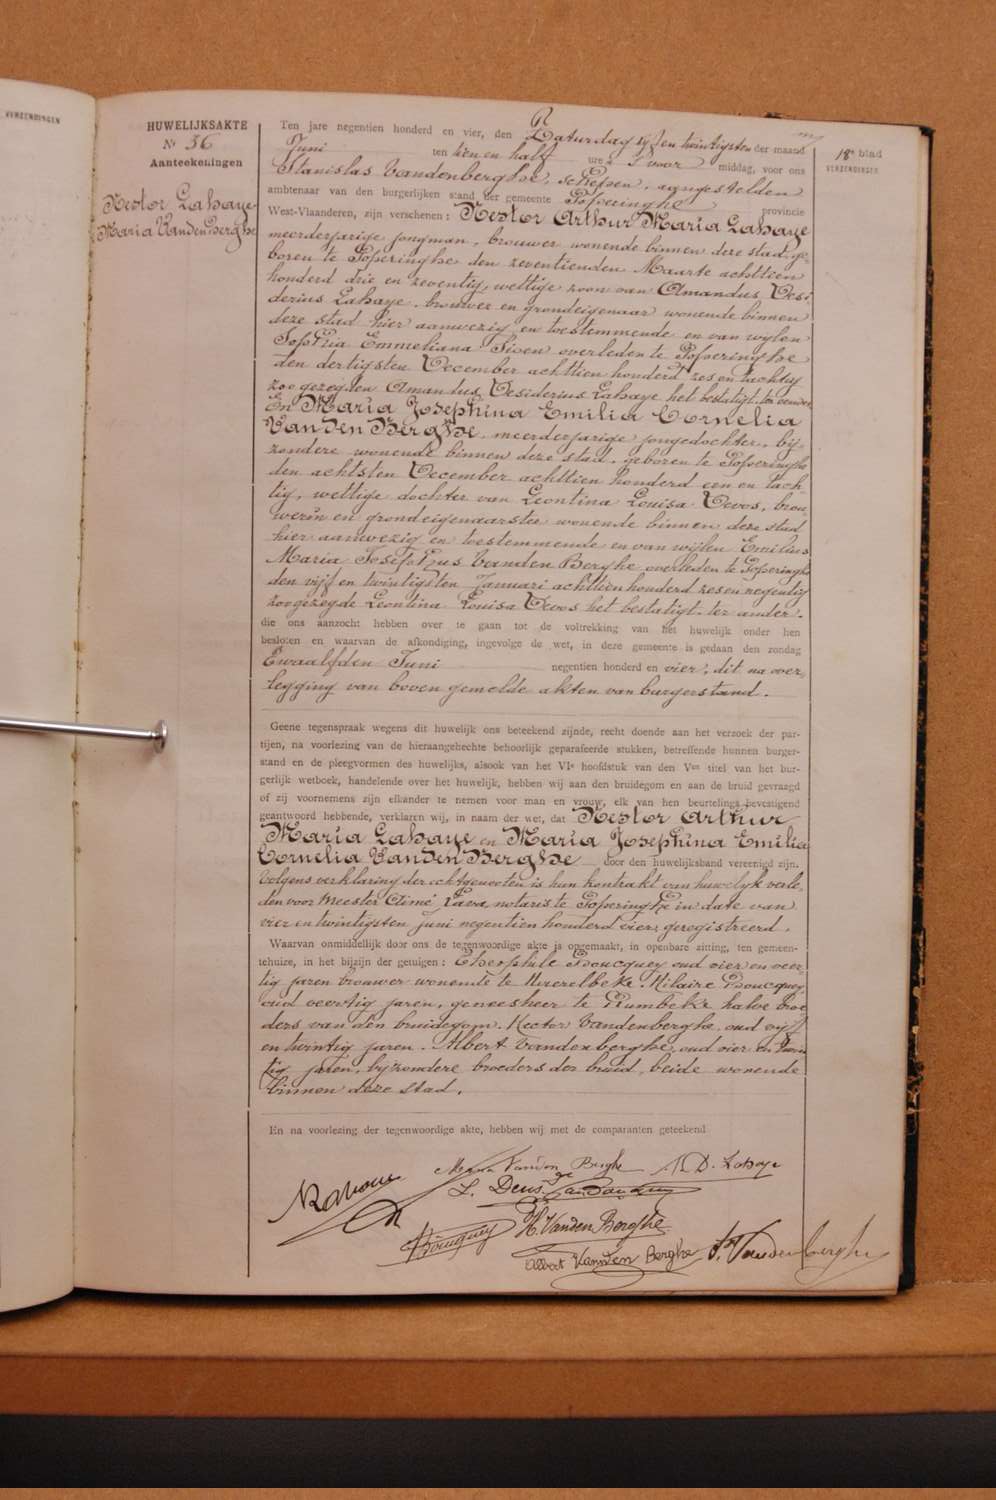 VERZENDINGEN
HUWELIJKSAKTE
Nr 36
Aanteekeningen
Nestor Lahaye
Maria VandenBerghe
18e blad
VERZENDINGEN
Ten jare negentien honderd en vier, den Zaturdag vijf en twintigsten der maand
Juni ten tien en half ure s voor middag, voor ons
Stanislas Vandenberghe, schepen, aangestelden
ambtenaar van den burgerlijken stand der gemeente Poperinghe provincie
West-Vlaanderen, zijn verschenen: Nestor Arthur Maria Lahaye
meerderjarige jongman, brouwer wonende binnen deze stad, ge-
boren te Poperinghe den zeventienden Maarte achttien
honderd drie en zeventig, wettige zoon van Amandus Desi-
derius Lahaye, brouwer en grondeigenaar wonende binnen
deze stad hier aanwezig en toestemmende en van wijlen
Sophia Emmeliana Sioen overleden te Poperinghe
den dertigsten December achttien honderd zes en tachtig
zoo gezegden Amandus Desiderius Lahaye het bestatigt. ten eender
En Maria Josephina Emilia Cornelia
VandenBerghe, meerderjarige jongedochter, bij-
zondere wonende binnen deze stad, geboren te Poperinghe
den achtsten December achttien honderd een en tach-
tig, wettige dochter van Leontina Louisa Devos, brou-
werin en grondeigenaarster wonende binnen deze stad
hier aanwezig en toestemmende en van wijlen Emilius
Maria Josephus Vanden Berghe overleden te Poperinghe
den vijf en twintigsten Januari achttien honderd zes en negentig
zoo gezegde Leontina Louisa Devos het bestatigt. ter ander.
die ons aanzocht hebben over te gaan tot de voltrekking van het huwelijk onder hen
besloten en waarvan de afkondiging, ingevolge de wet, in deze gemeente is gedaan den zondag
Twaalfden Juni negentien honderd en vier; dit na over-
legging van boven gemelde akten van burgerstand.
Geene tegenspraak wegens dit huwelijk ons beteekend zijnde, recht doende aan het verzoek der par-
tijen, na voorlezing van de hieraangehechte behoorlijk geparafeerde stukken, betreffende hunnen burger-
stand en de pleegvormen des huwelijks, alsook van het VIe hoofdstuk van den Ven titel van het bur-
gerlijk wetboek, handelende over het huwelijk, hebben wij aan den bruidegom en aan de bruid gevraagd
of zij voornemens zijn elkander te nemen voor man en vrouw, elk van hen beurtelings bevestigend
geantwoord hebbende, verklaren wij, in naam der wet, dat Nestor Arthur
Maria Lahaye en Maria Josephina Emilia
Cornelia VandenBerghe door den huwelijksband vereenigd zijn.
Volgens verklaring der echtgenooten is hun kontrakt van huwelijk verle-
den voor Meester Aimé Lava, notaris te Poperinghe in date van
vier en twintigsten juni negentien honderd vier, geregistreerd.
Waarvan onmiddellijk door ons de tegenwoordige akte is opgemaakt, in openbare zitting, ten gemeen-
tehuize, in het bijzijn der getuigen: Theophile Boucquey oud vier en veer-
tig jaren brouwer wonende te Meerelbeke. Hilaire Boucquey
oud veertig jaren, geneesheer te Rumbeke halve broe
ders van den bruidegom. Hector Vandenberghe, oud vijf
en twintig jaren. Albert Vandenberghe, oud vier en twin
tig jaren, bijzondere broeders der bruid, beide wonende
binnen deze stad.
En na voorlezing der tegenwoordige akte, hebben wij met de comparanten geteekend
Maria Vanden Berghe A. D. Lahaye
N Lahaye L. Devos
Boucquey H. Vanden Berghe
Albert Vanden Berghe St. Vandenberghe